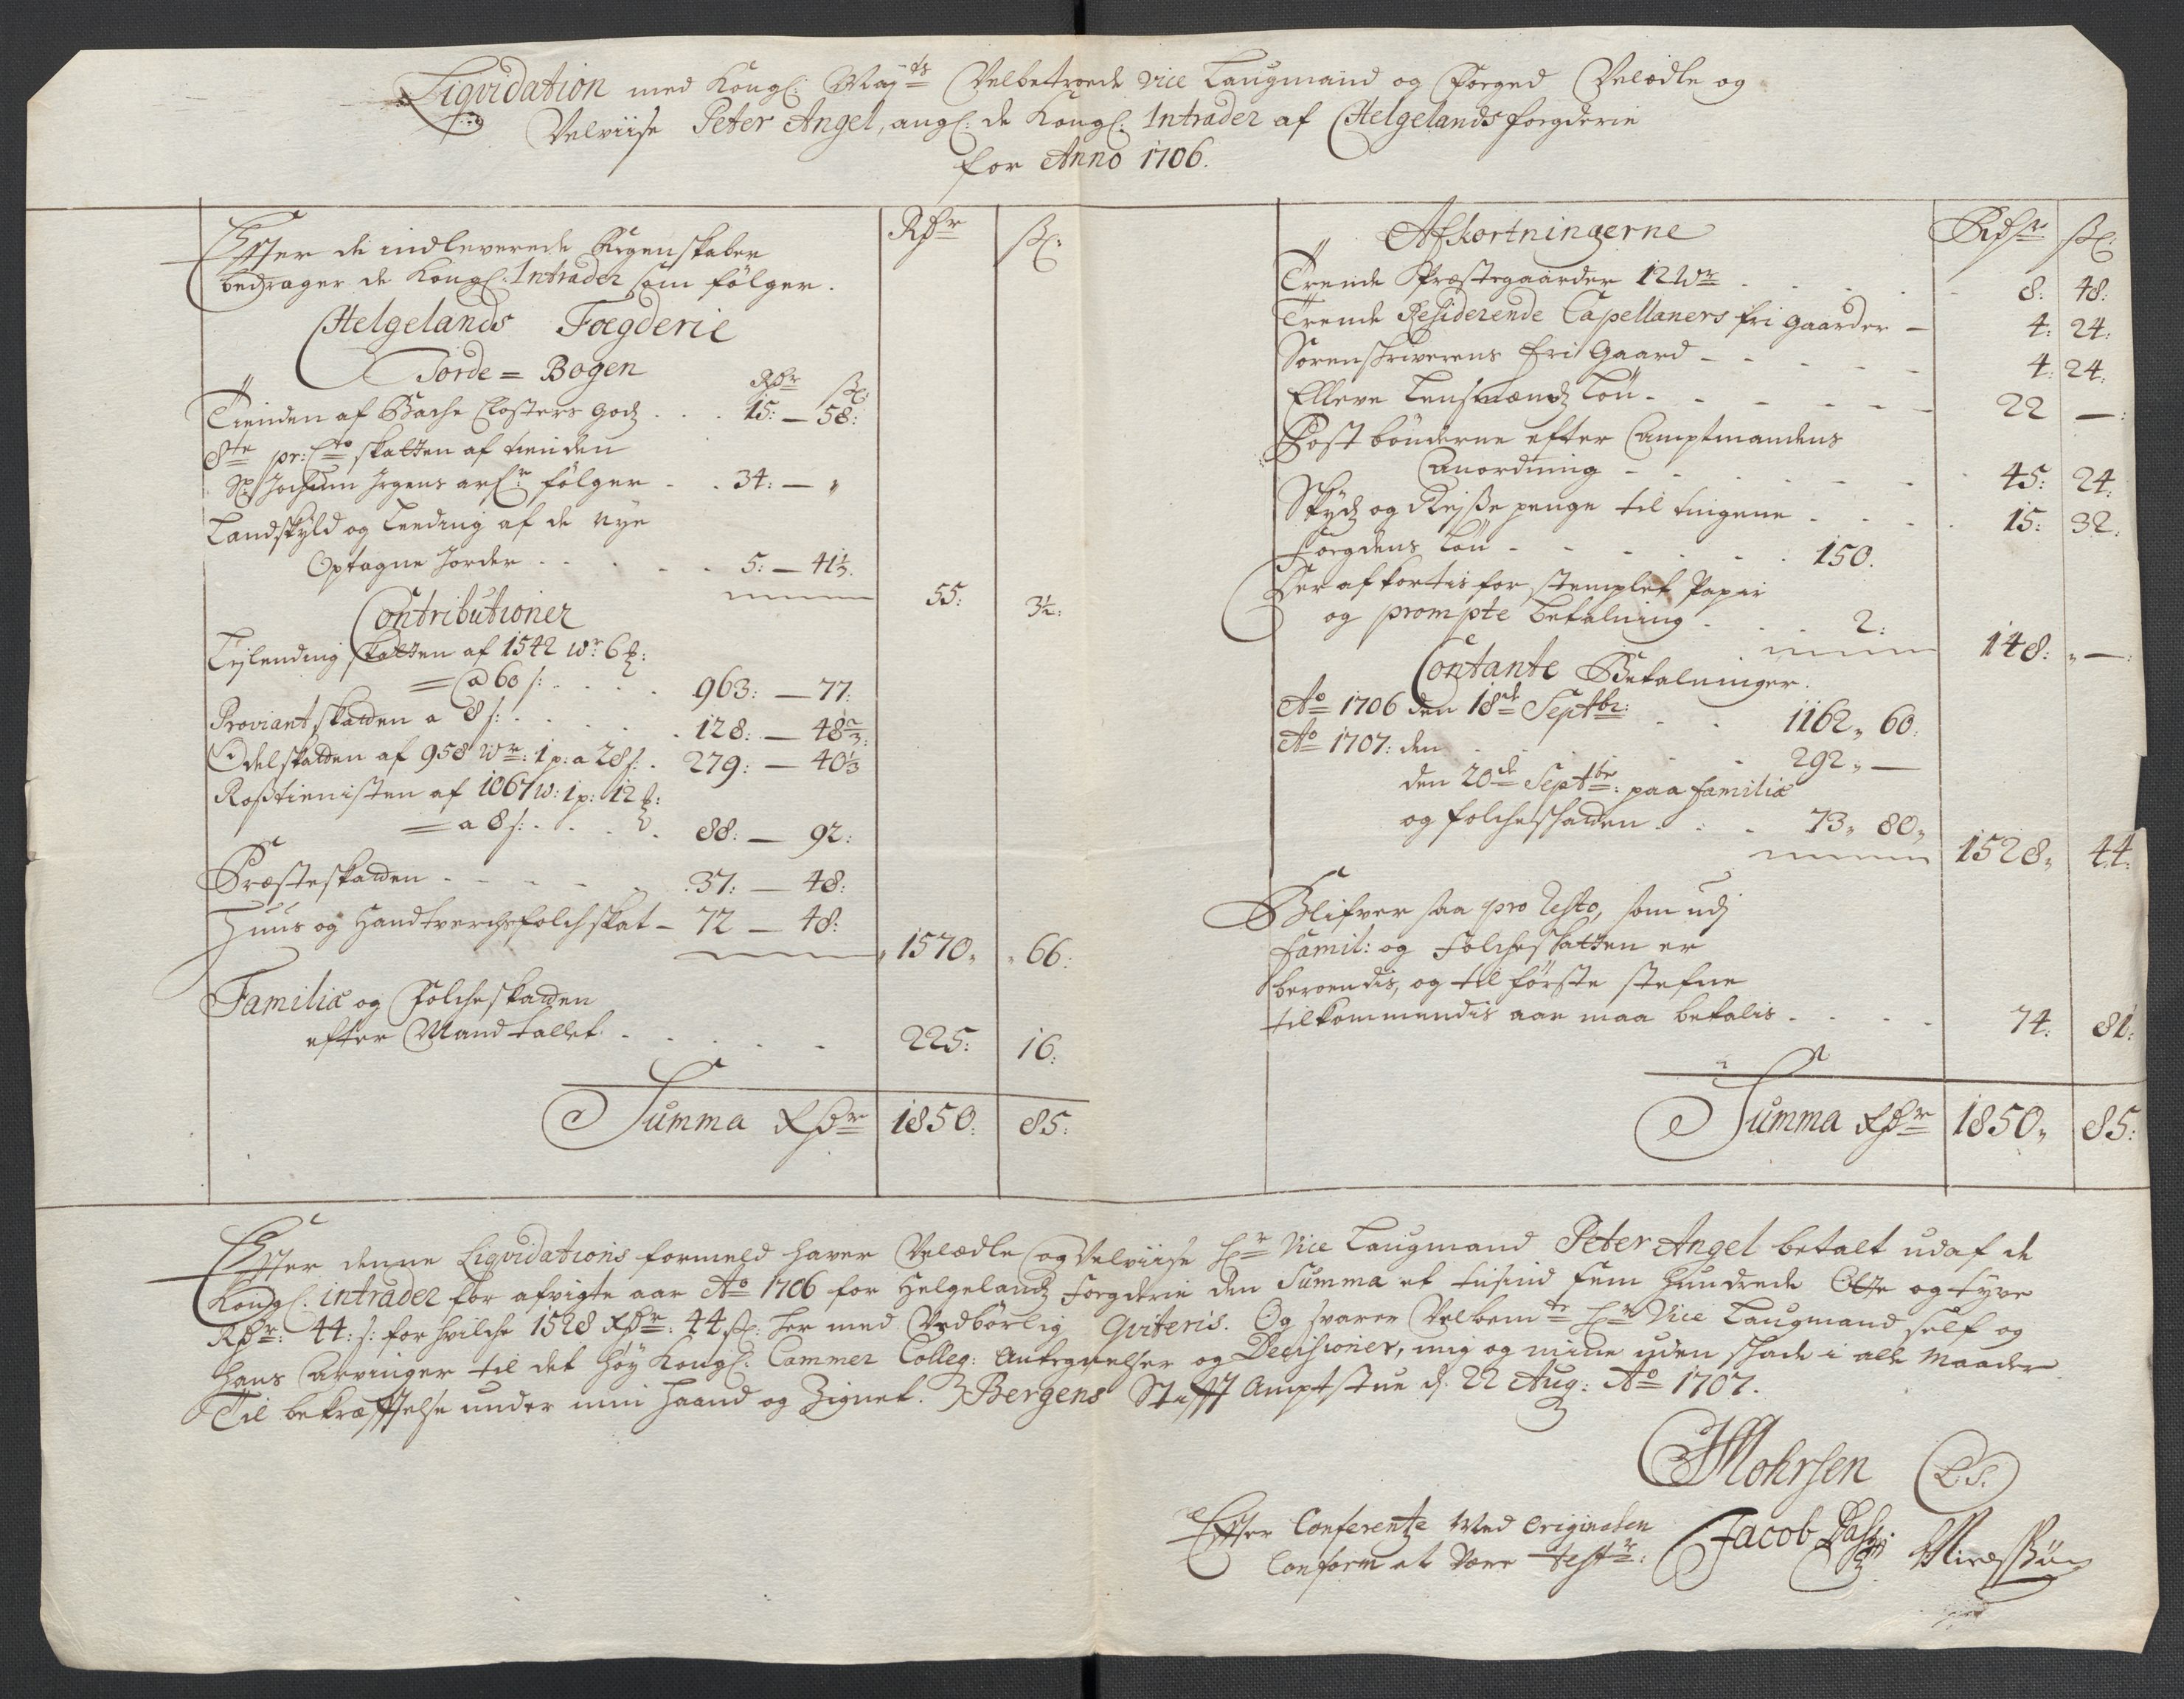 Liqvidation med Kongl: May:ts Velbetroede vice Laugmand og Foeged Velædle og
Velviise Peter Angel, angl: de Kongl: Intrader af Helgelands foegderie
for Anno 1706.
Efter de indleverede Regenskaber
bedrager de Kongl: Intrader som fölger.
Rdr ſz:
Helgelands Foegderie
Jorde = Bogen
Rdr ſz:
Tienden af Bache Closters godz . . . 15: — 58:
8te pr: Cto skatten af tienden
Sl: Jochum Jrgens arfr fölger . . 34: — „
Landskyld og Leeding af de nye
Optagne Jorder . . . . . 5: — 41⅓.
55: 3½:
Contributioner
Lejlending skatten af 1542 wr: 6 ℔:
= a 60 s: . . . . 963: — 77:
Proviant skatten a 8 s: . . . . 128: — 48⅔:
Odelskatten af 958 wr: 1 p: a 28 s: . 279: — 40⅓
Rosstienisten af 1067 w: 1 p: 12 ℔:
= a 8 s: . . . . 88: — 92:
Præsteskatten - - - - - 37: — 48:
Huus og Handtverchsfolch skat - 72 — 48:
1570„ 66:
Familiæ og Folcheskatten
efter Mandtallet . . . . . 225: 16:
Summa Rdr 1850: 85:
Afkortningerne
Rdr ſz:
Trende Præstegaarder 12 wr . . . . 8: 48:
Trende Residerende Capellaners fri gaarder — 4: 24:
Sorenskriverens fri Gaard - - - - - 4: 24:
Elleve Lensmændz Lön - - - - - - 22 —:
Post bönderne efter Amptmandens
Anordning - - - - - - 45: 24:
Skydz og Rejsse penge til tingene . . . . 15: 32.
Foegdens Lön - - - - - . 150.
Der afkortis for stemplet Papir
og prompte betalning . . . 2:
148: „—:
Contante Betalninger.
Ao 1706 den 18de Septbr: . . 1162„ 60:
Ao 1707: den . . . . . 292„ —
den 20de Septbr: paa familiæ
og folcheskatten . . . 73„ 80„
1528„ 44:
Blifver saa pro Resto, som udj
Famil: og Folcheskatten er
beroendis, og til förste stefne
tilkommendis aar maa betalis . . . . 74: 81:
Summa Rdr 1850„ 85:
Efter denne Liqvidations formeld haver Velædle og Velviise Hr Vice Laugmand Peter Angel betalt udaf de
Kongl: intrader for afvigte aar Ao 1706 for Helgelandz Foegderie den Summa et tusind fem hundrede Otte og tyve
Rdr: 44: s: for hvilche 1528 Rdr: 44 sz: her med Vedbörlig Qviteris. Og svarer Velbemte Hr Vice Laugmand self og
hans Arvinger til det höy Kongl: Cammer Colleg: Antegnelser og Decisioner, mig og mine uden skade i alle Maader
Til bekræfftelse under min haand og Zignet. Bergens Stifft Amptstue d: 22 Aug: Ao 1707.
Mohrsen L.S.
Effter Conferentze Med Originalen
Conform at være testr:
Jacob